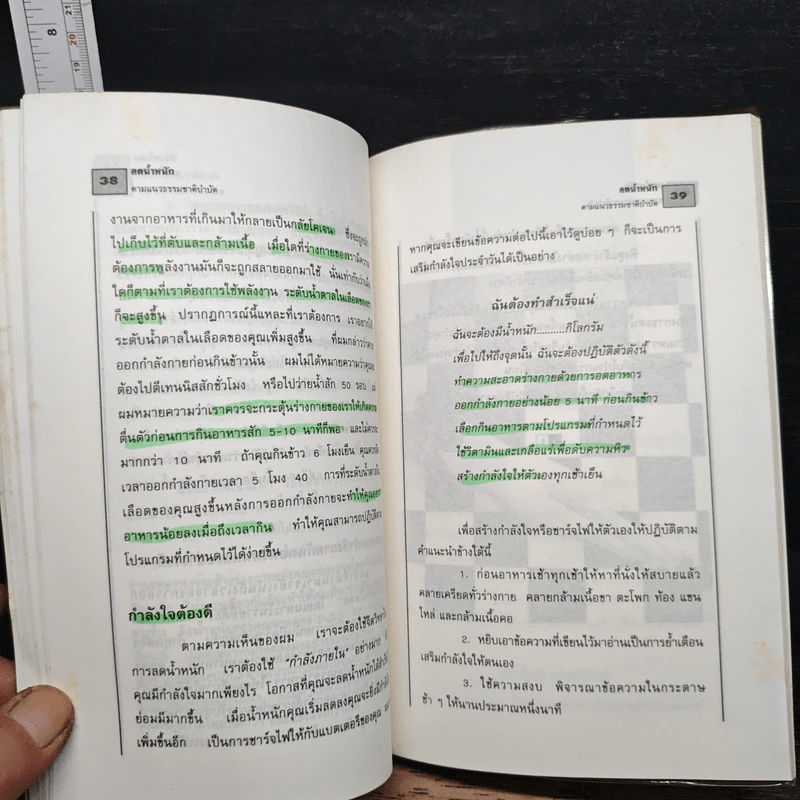 8
21
20
19
38
ลดน้ำหนัก
ตามแนวธรรมชาติบำบัด
งานจากอาหารที่เกินมาให้กลายเป็นกลัยโคเจน ซึ่งจะถูกนำ
ไปเก็บไว้ที่ตับและกล้ามเนื้อ เมื่อใดที่ร่างกายของเรามีความ
ต้องการพลังงานมันก็จะถูกสลายออกมาใช้ นั่นเท่ากับว่าเมื่อ
ใดก็ตามที่เราต้องการใช้พลังงาน ระดับน้ำตาลในเลือดของเรา
ก็จะสูงขึ้น ปรากฏการณ์นี้แหละที่เราต้องการ เราอยากให้
ระดับน้ำตาลในเลือดของคุณเพิ่มสูงขึ้น ที่ผมกล่าวว่าควร
ออกกำลังกายก่อนกินข้าวนั้น ผมไม่ได้หมายความว่าคุณจะ
ต้องไปตีเทนนิสสักชั่วโมง หรือไปว่ายน้ำสัก 50 รอบ แต่
ผมหมายความว่าเราควรจะกระตุ้นร่างกายของเราให้เกิดความ
ตื่นตัวก่อนการกินอาหารสัก 5-10 นาทีก็พอ และไม่ควรจะ
มากกว่า 10 นาที ถ้าคุณกินข้าว 6 โมงเย็น คุณควรมี
เวลาออกกำลังกายเวลา 5 โมง 40 การที่ระดับน้ำตาลใน
เลือดของคุณสูงขึ้นหลังการออกกำลังกายจะทำให้คุณอยาก
อาหารน้อยลงเมื่อถึงเวลากิน ทำให้คุณสามารถปฏิบัติตาม
โปรแกรมที่กำหนดไว้ได้ง่ายขึ้น
กำลังใจต้องดี
ตามความเห็นของผม เราจะต้องใช้จิตวิทยาใน
การลดน้ำหนัก เราต้องใช้ "กำลังภายใน" อย่างมาก ยิ่ง
คุณมีกำลังใจมากเพียงไร โอกาสที่คุณจะลดน้ำหนักได้สำเร็จ
ย่อมมีมากขึ้น เมื่อน้ำหนักคุณเริ่มลดลงคุณจะยิ่งมีกำลังใจ
เพิ่มขึ้นอีก เป็นการชาร์จไฟให้กับแบตเตอรี่ของคุณ
ลดน้ำหนัก
ตามแนวธรรมชาติบำบัด
39
หากคุณจะเขียนข้อความต่อไปนี้เอาไว้ดูบ่อย ๆ ก็จะเป็นการ
เสริมกำลังใจประจำวันได้เป็นอย่าง
ฉันต้องทำสำเร็จแน่
ฉันจะต้องมีน้ำหนัก..........กิโลกรัม
เพื่อไปให้ถึงจุดนั้น ฉันจะต้องปฏิบัติตัวดังนี้
ทำความสะอาดร่างกายด้วยการอดอาหาร
ออกกำลังกายอย่างน้อย 5 นาที ก่อนกินข้าว
เลือกกินอาหารตามโปรแกรมที่กำหนดไว้
ใช้วิตามินและเกลือแร่เพื่อดับความหิว
สร้างกำลังใจให้ตัวเองทุกเช้าเย็น
เพื่อสร้างกำลังใจหรือชาร์จไฟให้ตัวเองให้ปฏิบัติตาม
คำแนะนำข้างใต้นี้
1. ก่อนอาหารเช้าทุกเช้าให้หาที่นั่งให้สบายแล้ว
คลายเครียดทั่วร่างกาย คลายกล้ามเนื้อขา ตะโพก ท้อง แขน
ไหล่ และกล้ามเนื้อคอ
2. หยิบเอาข้อความที่เขียนไว้มาอ่านเป็นการย้ำเตือน
เสริมกำลังใจให้ตนเอง
3. ใช้ความสงบ พิจารณาข้อความในกระดาษ
ช้า ๆ ให้นานประมาณหนึ่งนาที